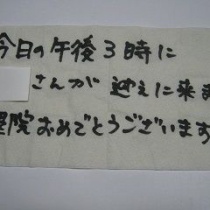 今日の午後3時に
さんが迎えに来ま
院おめでとうございます